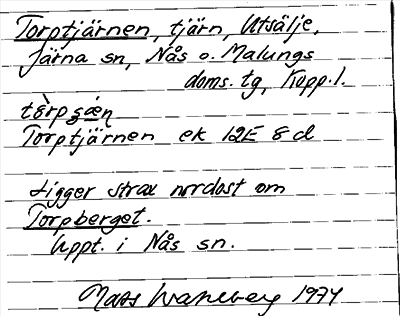 Torptjärnen, tjärn, Utsälje,
Järna sn, Nås o. Malungs
doms. tg, Kopp. l.
tò̱rpʂæ̱ṇ
Torptjärnen ek 12E 8d
Ligger strax nordost om
Torpberget.
Uppt. i Nås sn.
Mats Wahlberg 1974